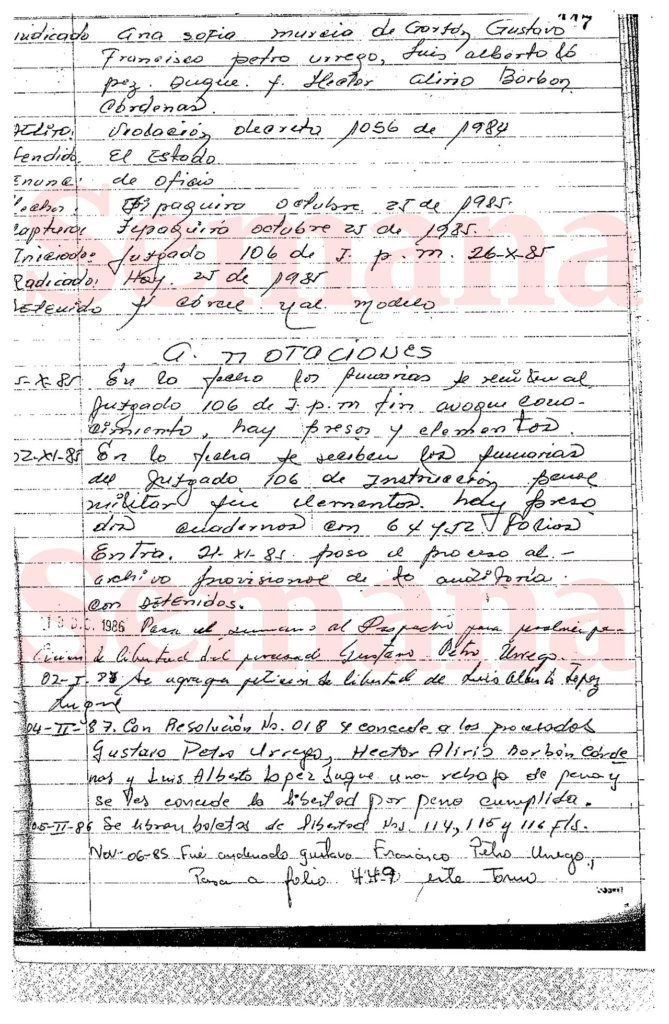 117
indicado Ana Sofia Murcia de Gordón, Gustavo
Francisco Petro Urrego, Luis Alberto Ló
pez Duque y Hector Alirio Borbon
Cárdenas.
Delito: Violación decreto 1056 de 1984
fendido: El Estado
Enunc: de oficio
echos: Zipaquira octubre 25 de 1985.
Captura: Zipaquira octubre 25 de 1985.
Iniciado: Juzgado 106 de I. p. m. 26-X-85
Radicado: Hoy. 25 de 1985
etenido y Carcel Nal modelo
ANOTACIONES
5-X-85 En la fecha las sumarias se remiten al
Juzgado 106 de I. p. m fin avoque cono-
cimiento, hay presos y elementos.
02-XI-85 En la fecha se reciben las sumarias
del Juzgado 106 de Instrucción penal
militar sin elementos. hay preso
dos cuadernos con 64 y 52 folios
Entra. 21-XI-85. pasa el proceso al -
archivo provisional de la auditoría
con Detenidos.
1986 Pasa el sumario al Despacho para
de libertad del procesado Gustavo Petro Urrego.
02-I-87 Se agrega petición de libertad de Luis Alberto Lopez
Duque
04-II-87. Con Resolución No. 018 se concede a los procesados
Gustavo Petro Urrego, Hector Alirio Borbón Cárde
nas y Luis Alberto Lopez Duque una rebaja de pena y
se les concede la libertad por pena cumplida.
05-II-86 Se libran boletas de libertad Nos. 114, 115 y 116 F/s.
Nov-06-85 Fué condenado Gustavo Francisco Petro Urrego,
Pasa a folio 449 este Tomo
Semana
Semana